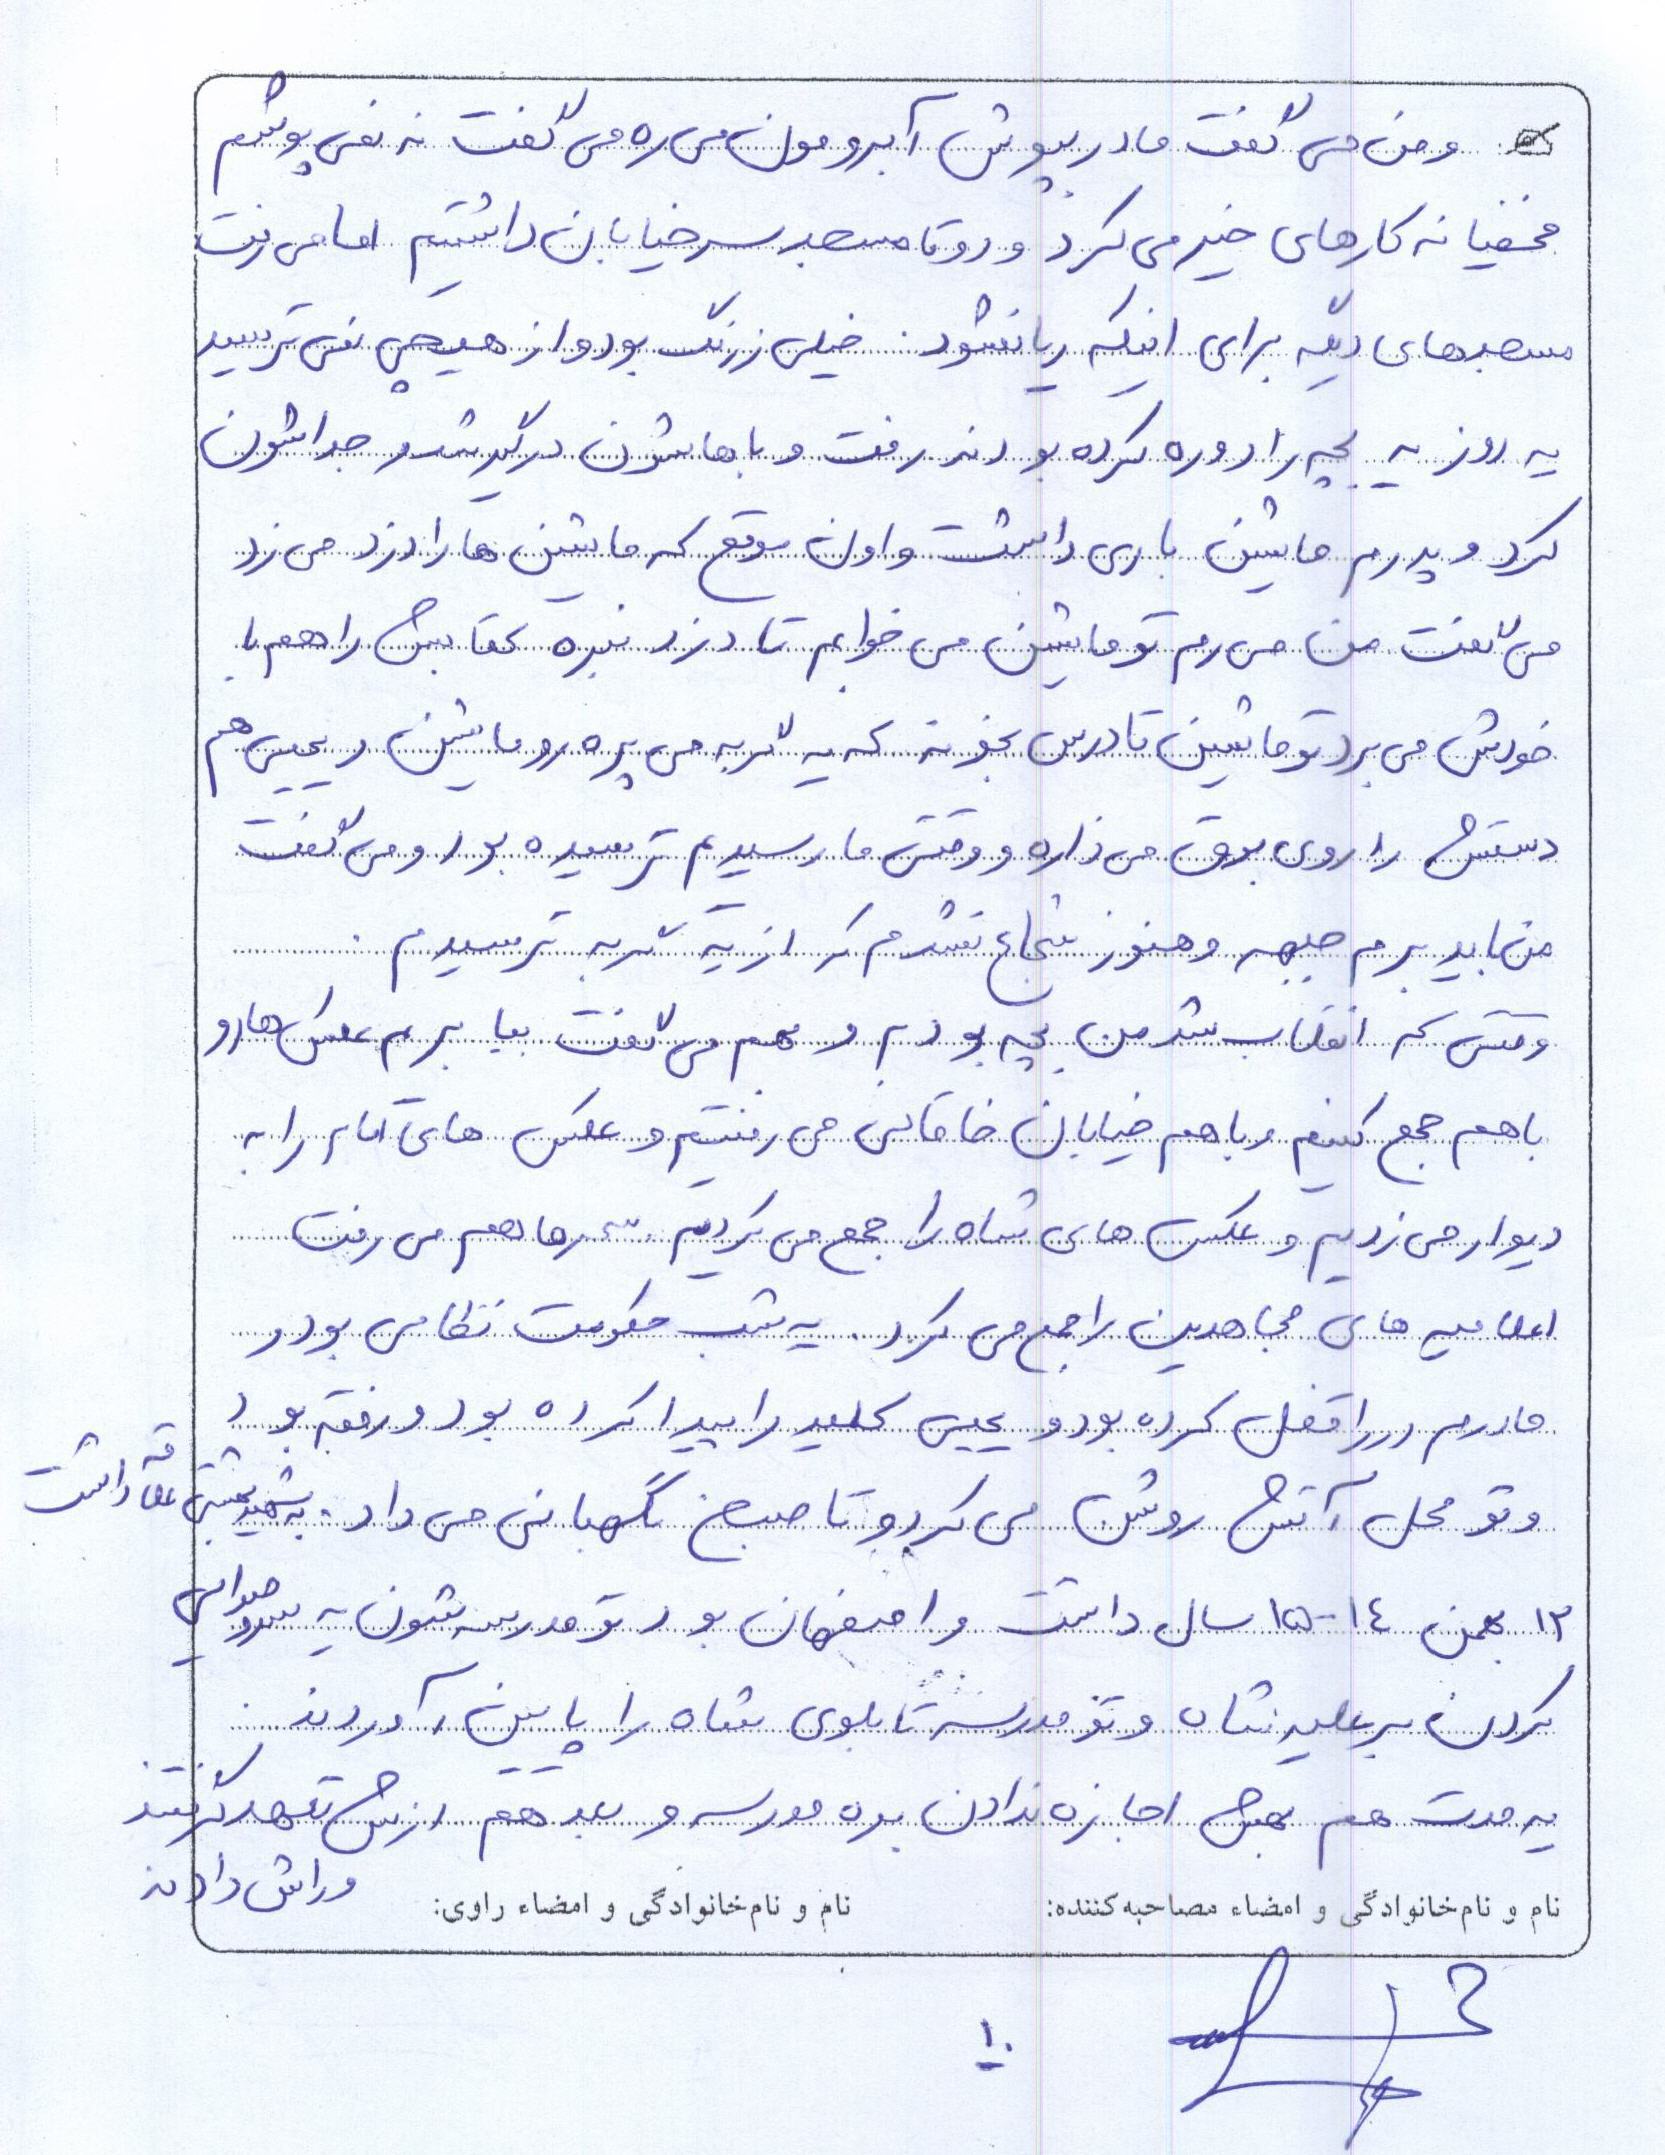 ومن می گفت مادر بپوش آبرومون می ره می گفت نه نمی پوشم
مخفیانه کارهای خیر می کرد و دو تا مسجد سر خیابان داشتیم اما می رفت
مسجدهای دیگه برای اینکه ریا نشود. خیلی زرنگ بود و از هیچی نمی ترسید
یه روز یه بچه را دوره کرده بودند رفت و باهاشون درگیر شد و جداشون
کرد و پدرم ماشین باری داشت و اون موقع که ماشین ها را دزد می زد
می گفت من می رم تو ماشین می خوابم تا دزد نبره کتابش را هم با
خودش می برد تو ماشین تا درس بخونه که یه گربه می پره رو ماشین و یحیی هم
دستش را روی بوق می ذاره و وقتی ما رسیدیم ترسیده بود و می گفت
من باید برم جبهه و هنوز شجاع نشدم که از یه گربه ترسیدم.
وقتی که انقلاب شد من بچه بودم و بهم می گفت بیا بریم عکس ها رو
باهم جمع کنیم و باهم خیابان خاقانی می رفتیم و عکس های امام را به
دیوار می زدیم و عکس های شاه را جمع می کردیم. سحرها هم می رفت
اعلامیه های مجاهدین را جمع می کرد. یه شب حکومت نظامی بود و
مادرم در را قفل کرده بود و یحیی کلید را پیدا کرده بود و رفته بود
و تو محل آتش روشن می کرد و تا صبح نگهبانی می داد. به شهید بهشتی علاقه داشت
۱۲ بهمن ۱۴-۱۵ سال داشت و اصفهان بود تو مدرسه شون یه سر و صدایی
کردن بر علیه شاه و تو مدرسه تابلوی شاه را پایین آوردند.
یه مدت هم بهش اجازه ندادن بره مدرسه و بعد هم ازش تعهد گرفتند
و راش دادند
نام و نام خانوادگی و امضاء مصاحبه کننده: نام و نام خانوادگی و امضاء راوی:
۱۰